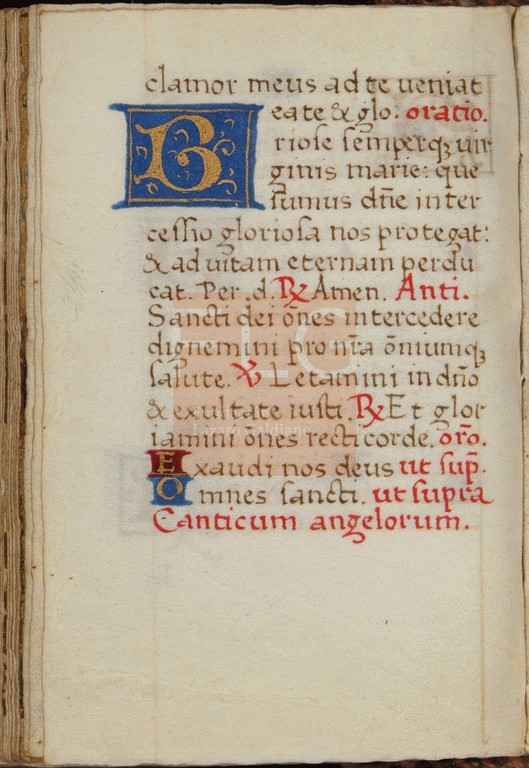 clamor meus ad te ueniat
Beate & glo. oratio.
riose semperqꝫ uir
ginis marie: que
sumus dn̄e inter
cessio gloriosa nos protegat:
& ad uitam eternam perdu
cat. Per. d. ℞ Amen. Anti.
Sancti dei ōnes intercedere
dignemini pro nr̄a ōniumqꝫ
salute. ℣ Letamini in dn̄o
& exultate iusti. ℞ Et glor
iamini ōnes recti corde. oro̅.
Exaudi nos deus ut sup̅.
Omnes sancti. ut supra
Canticum angelorum.
FLG
Lázaro Galdiano